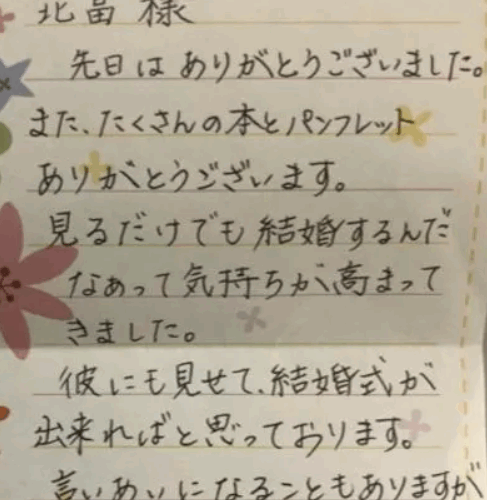 北畠 様
先日は ありがとうございました。
また、たくさんの本とパンフレット
ありがとうございます。
見るだけでも 結婚するんだ
なぁって 気持ちが 高まって
きました。
彼にも見せて、結婚式が
出来ればと思っております。
言いあいになることもありますが